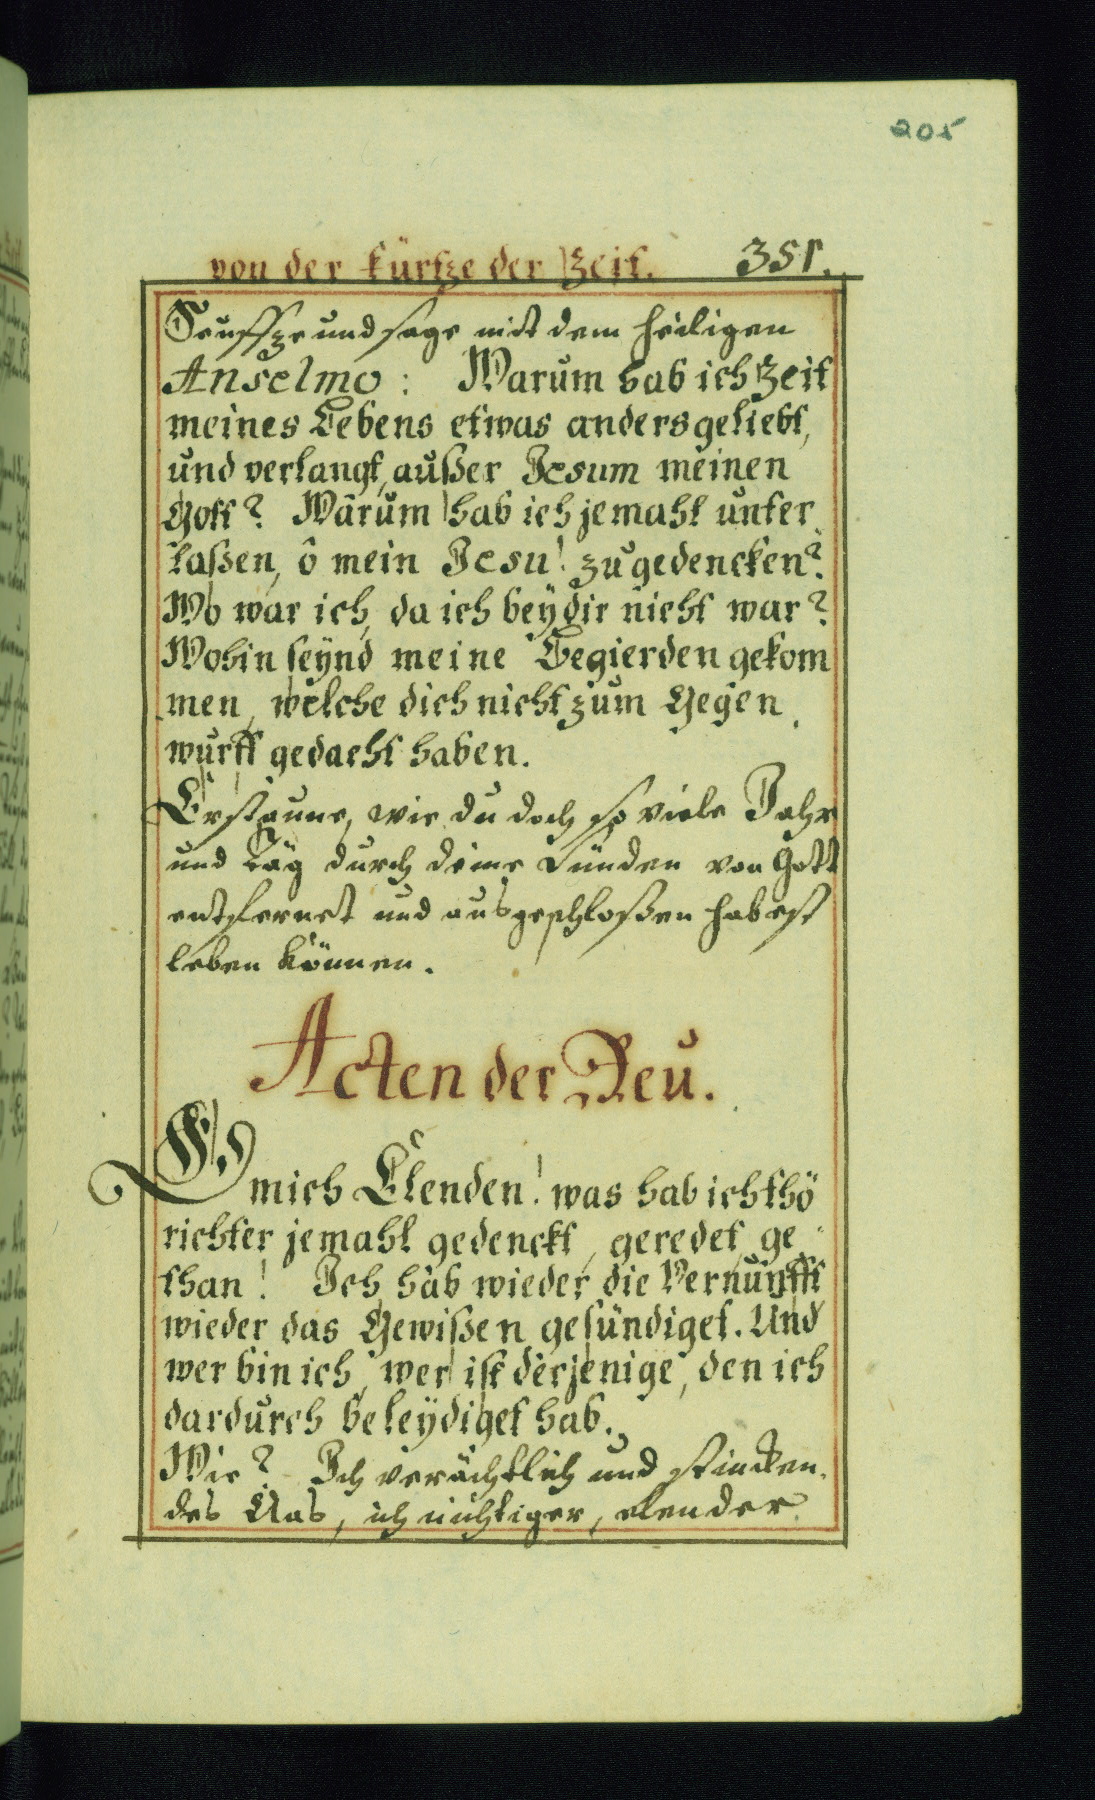 205
von der kürtze der Zeit. 351.
Seuffze und sage mit dem heiligen
Anselmo: Warum hab ich Zeit
meines Lebens etwas anders geliebt,
und verlangt, außer Jesum meinen
Gott? Warum hab ich jemahl unter
laßen, ô mein Jesu! zu gedencken?
Wo war ich, da ich beÿ dir nicht war?
Wohin seÿnd meine Begierden gekom
men, welche dich nicht zum Gegen
wurff gedacht haben.
Erstaune, wie du doch so viele Jahr
und Täg durch deine Sünden von Gott
entfernet und ausgeschloßen habest
leben können.
Acten der Reu.
O mich Elenden! was hab ich thö
richter jemahl gedenckt, geredet, ge
than! Ich hab wieder die Vernunfft
wieder das Gewißen gesündiget. Und
wer bin ich, wer ist derjenige, den ich
dardurch beleÿdiget hab.
Wie? Ich verächtlich und stincken
des Aas, ich nichtiger, elender